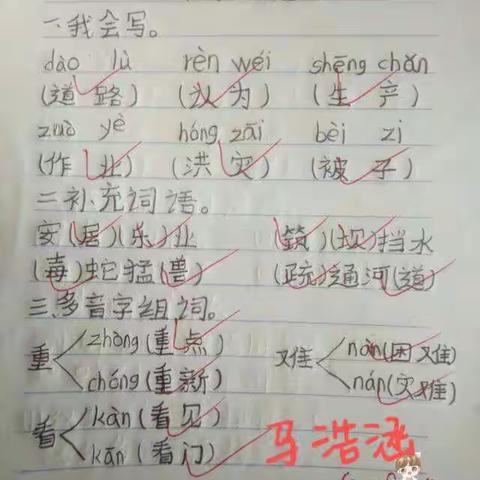 一、我会写。
dào lù rèn wéi shēng chǎn
(道路) (认为) (生产)
zuò yè hóng zāi bèi zi
(作业) (洪灾) (被子)
二补充词语。
安(居)(乐)业 (筑)(坝)挡水
(毒)蛇猛(兽) (疏)通河(道)
三,多音字组词。
重 zhòng(重点) 难 nàn(困难)
chóng(重新) nán(灾难)
看 kàn(看见)
kān(看门)
马浩涵